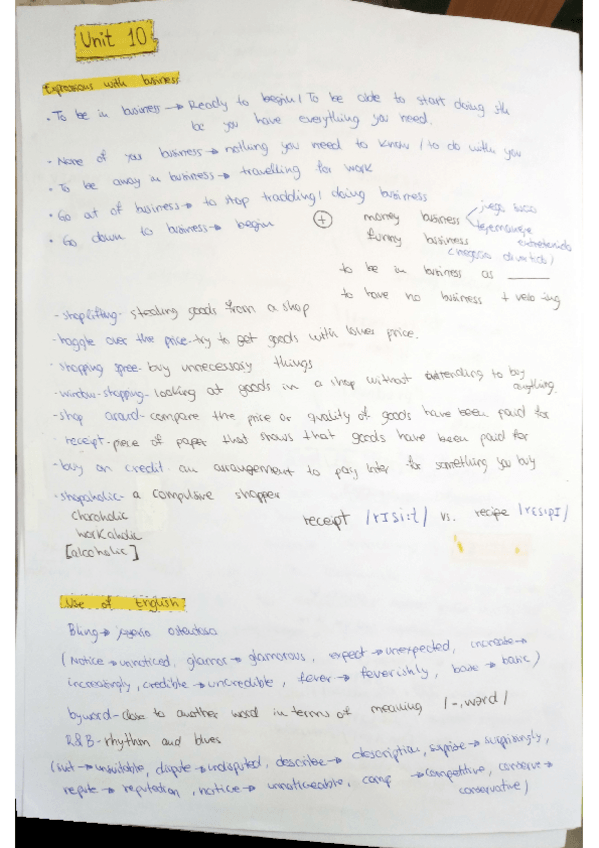 Unit 10
Expressions with business
· To be in business → Ready to begin / To be able to start doing sth
bc you have everything you need.
· None of your business → nothing you need to know / to do with you
· To be away in business → travelling for work
· Go out of business → to stop tradding / doing business
· Go down to business → begin
+ monny business juego sucio
tejemaneje
funny business entretenido
(negocio divertido)
to be in business as ______
to have no business + verb ing
- shoplifting - stealing goods from a shop
- haggle over the price - try to get goods with lower price.
- shopping spree - buy unnecessary things
- window-shopping - looking at goods in a shop without intending to buy
anything
- shop around - compare the price or quality of goods have been paid for
receipt - piece of paper that shows that goods have been paid for
- buy on credit - an arrangement to pay later for something you buy
- shopaholic - a compulsive shopper
chocoholic
workaholic
[alcoholic]
receipt /rɪsi:t/ vs. recipe /resɪpɪ/
Use of English
Bling → joyería ostentosa
(Notice → unnoticed, glamor → glamorous, expect → unexpected, increase →
increasingly, credible → uncredible, fever → feverishly, base → basic)
byword - close to another word in terms of meaning /-,word/
R&B - rhythm and blues
(suit → unsuitable, dispute → undisputed, describe → description, suprise → surprisingly,
repute → reputation, notice → unnoticeable, comp → competitive, conserve →
conservative)